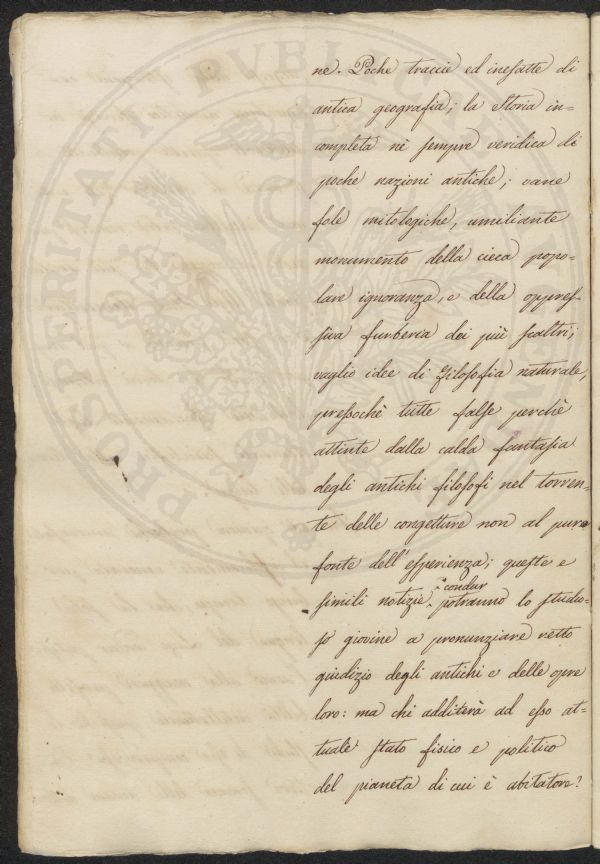 ne. Poche traccie ed inesatte di
antica geografia; la Storia in=
completa nè sempre veridica di
poche nazioni antiche; vane
fole mitologiche, umiliante
monumento della cieca popo=
lare ignoranza, e della oppres=
siva furberia dei più scaltri;
vaghe idee di Filosofia naturale,
pressochè tutte false perchè
attinte dalla calda fantasia
degli antichi filosofi nel torren=
te delle congetture non al puro
fonte dell'esperienza; queste e
condur
simili notizie potranno lo studio=
so giovine a pronunziare retto
giudizio degli antichi e delle opre
loro: ma chi additerà ad esso at=
tuale stato fisico e politico
del pianeta di cui è abitatore?
PROSPERITATI PUBLICAE